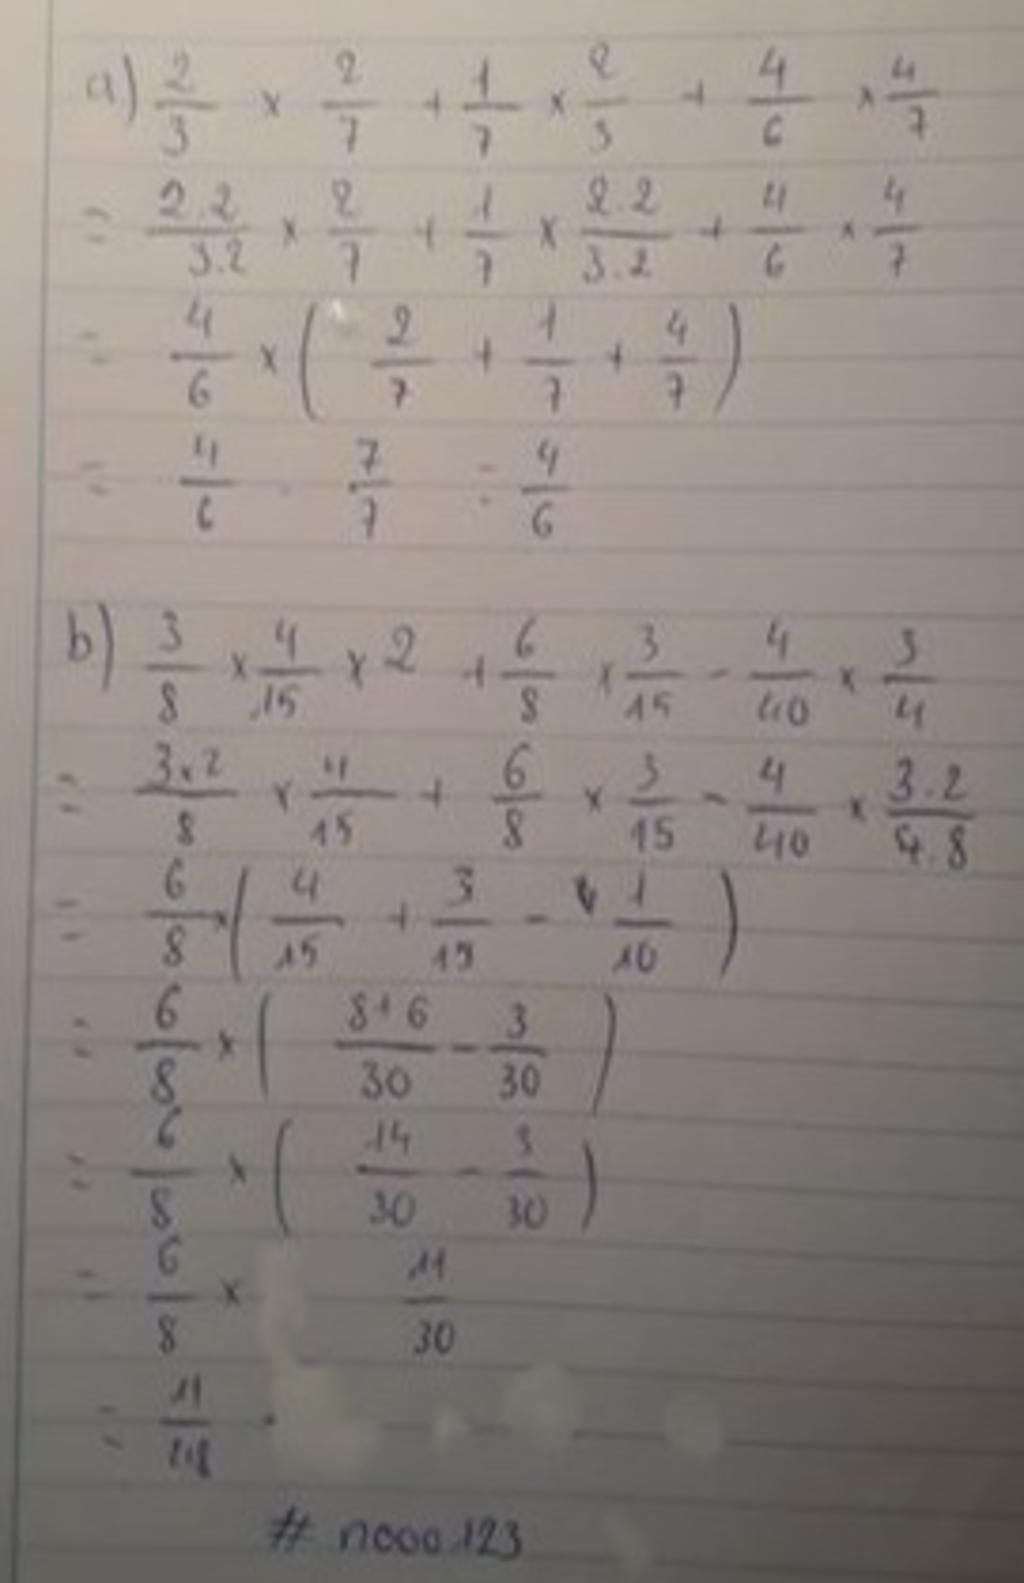 a) 2/3 × 2/7 + 1/7 × 2/3 + 4/6 × 4/7
= 2.2/3.2 × 2/7 + 1/7 × 2.2/3.2 + 4/6 × 4/7
= 4/6 × ( 2/7 + 1/7 + 4/7 )
= 4/6 . 7/7 = 4/6
b) 3/8 × 4/15 × 2 + 6/8 × 3/15 - 4/40 × 3/4
= 3×2/8 × 4/15 + 6/8 × 3/15 - 4/40 × 3.2/4.8
= 6/8 × ( 4/15 + 3/15 - 1/10 )
= 6/8 × ( 8+6/30 - 3/30 )
= 6/8 × ( 14/30 - 3/30 )
= 6/8 × 11/30
= 11/
# nooo.123